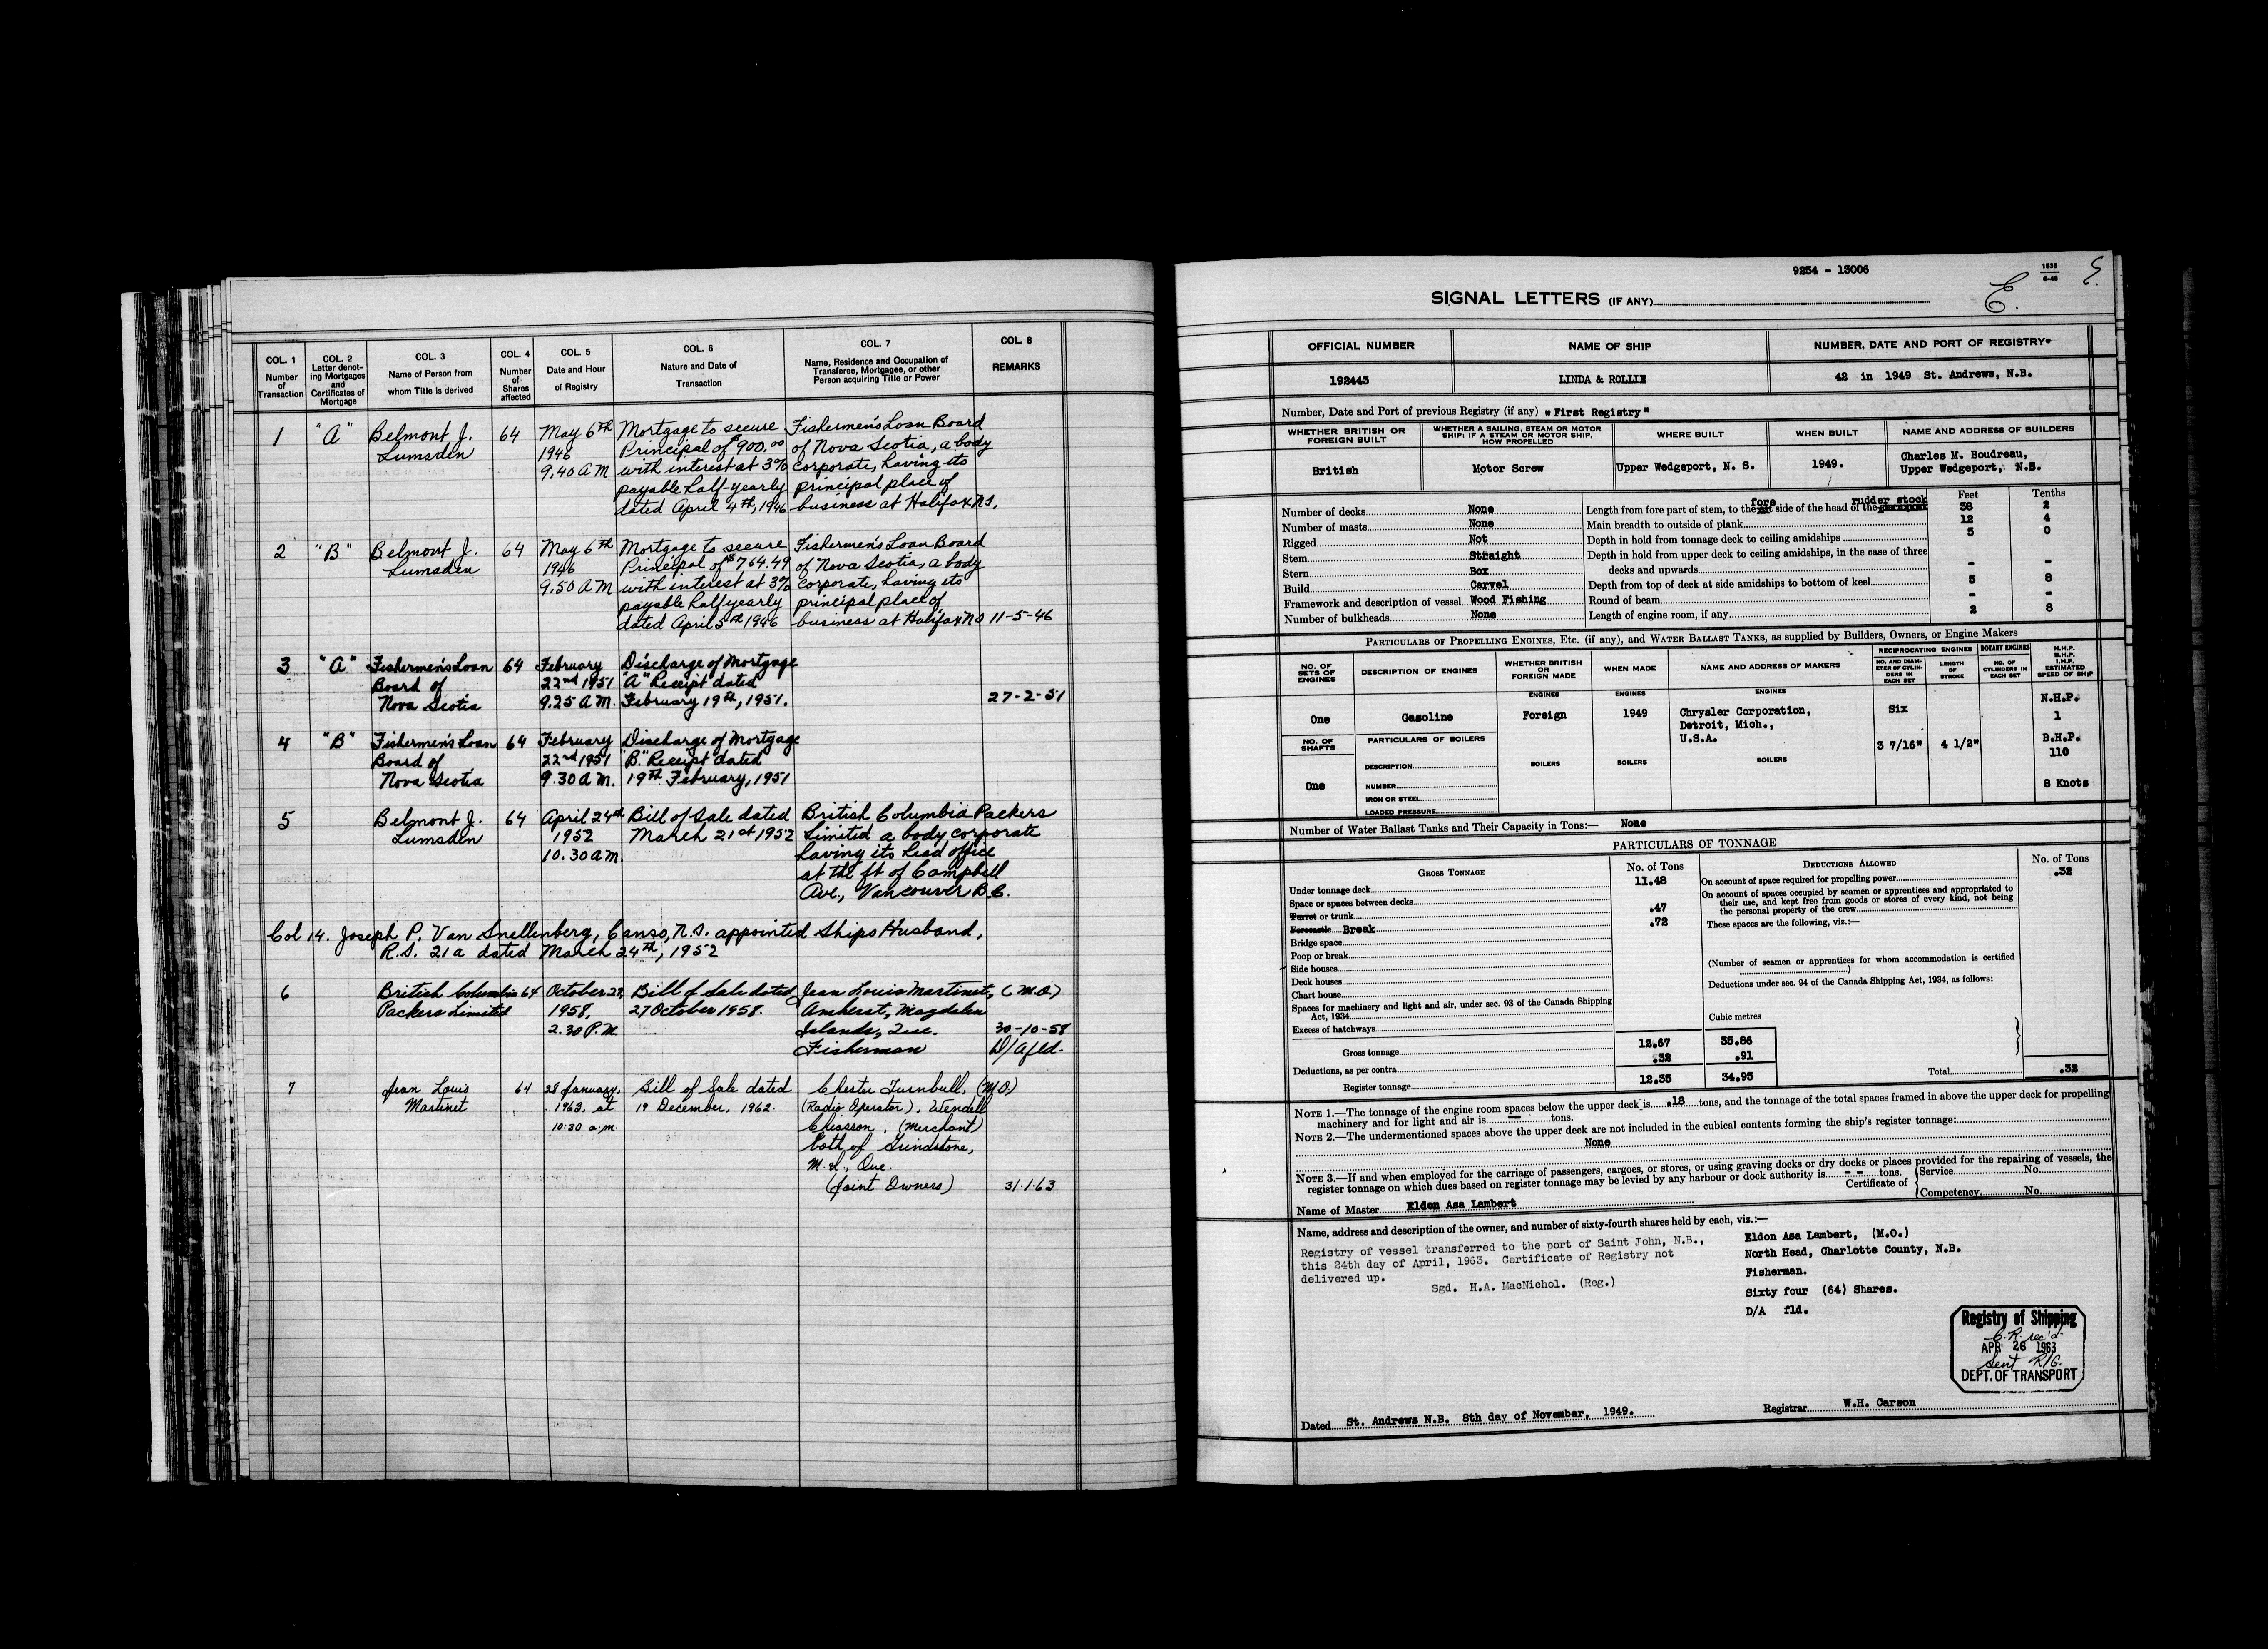 COL. 1
Number
of
Transaction
COL. 2
Letter denot-
ing Mortgages
and
Certificates of
Mortgage
COL. 3
Name of Person from
whom Title is derived
COL. 4
Number
of
Shares
affected
COL. 5
Date and Hour
of Registry
COL. 6
Nature and Date of
Transaction
COL. 7
Name, Residence and Occupation of
Transferee, Mortgagee, or other
Person acquiring Title or Power
COL. 8
REMARKS
1 "A" Belmont J. 64 May 6th Mortgage to secure Fishermen's Loan Board
Lumsden 1946 Principal of $900.00 of Nova Scotia, a body
9.40 A M with interest at 3% corporate, having its
payable half-yearly principal place of
dated April 4th, 1946 business at Halifax N.S.
2 "B" Belmont J. 64 May 6th Mortgage to secure Fishermen's Loan Board
Lumsden 1946 Principal of $764.49 of Nova Scotia, a body
9.50 A M with interest at 3% corporate, having its
payable half yearly principal place of
dated April 5th 1946 business at Halifax NS 11-5-46
3 "A" Fishermen's Loan 64 February Discharge of Mortgage
Board of 22nd 1951 "A" Receipt dated
Nova Scotia 9.25 A M. February 19th, 1951. 27-2-51
4 "B" Fishermen's Loan 64 February Discharge of Mortgage
Board of 22nd 1951 "B" Receipt dated
Nova Scotia 9.30 A M. 19th February, 1951
5 Belmont J. 64 April 24th Bill of Sale dated British Columbia Packers
Lumsden 1952 March 21st 1952 Limited a body corporate
10.30 A M having its head office
at the ft of Campbell
Ave., Vancouver B.C.
Col 14. Joseph P. Van Snellenberg, Canso, N.S. appointed Ships Husband,
R.S. 21a dated March 24th, 1952
6 British Columbia 64 October 29, Bill of Sale dated Jean Louis Martinet, (M.O.)
Packers Limited 1958, 27 October 1958. Amherst, Magdalen
2.30 P.M. Islands, Que. 30-10-58
Fisherman D/A fld.
7 Jean Louis 64 28 January, Bill of Sale dated Chester Turnbull, (M.O)
Martinet 1963, at 19 December, 1962. (Radio Operator), Wendell
10:30 a.m. Chiasson, (Merchant)
both of Grindstone,
M.I., Que.
(Joint Owners) 31.1.63
9254 - 13006
1535
6-48
SIGNAL LETTERS (IF ANY)
E.
OFFICIAL NUMBER NAME OF SHIP NUMBER, DATE AND PORT OF REGISTRY
192443 LINDA & ROLLIE 42 in 1949 St. Andrews, N.B.
Number, Date and Port of previous Registry (if any) "First Registry"
WHETHER BRITISH OR
FOREIGN BUILT
WHETHER A SAILING, STEAM OR MOTOR
SHIP; IF A STEAM OR MOTOR SHIP,
HOW PROPELLED
WHERE BUILT
WHEN BUILT
NAME AND ADDRESS OF BUILDERS
British Motor Screw Upper Wedgeport, N. S. 1949. Charles M. Boudreau,
Upper Wedgeport, N.S.
Feet Tenths
Number of decks None
Number of masts None
Rigged Not
Stem Straight
Stern Box
Build Carvel
Framework and description of vessel Wood Fishing
Number of bulkheads None
fore rudder stock
Length from fore part of stem, to the side of the head of the 38 2
Main breadth to outside of plank 12 4
Depth in hold from tonnage deck to ceiling amidships 5 0
Depth in hold from upper deck to ceiling amidships, in the case of three
decks and upwards - -
Depth from top of deck at side amidships to bottom of keel 5 8
Round of beam - -
Length of engine room, if any 2 8
PARTICULARS OF PROPELLING ENGINES, ETC. (if any), and WATER BALLAST TANKS, as supplied by Builders, Owners, or Engine Makers
NO. OF
SETS OF
ENGINES
DESCRIPTION OF ENGINES
WHETHER BRITISH
OR
FOREIGN MADE
WHEN MADE
NAME AND ADDRESS OF MAKERS
RECIPROCATING ENGINES
NO. AND DIAM-
ETER OF CYLIN-
DERS IN
EACH SET
LENGTH
OF
STROKE
ROTARY ENGINES
NO. OF
CYLINDERS IN
EACH SET
N.H.P.
B.H.P.
I.H.P.
ESTIMATED
SPEED OF SHIP
ENGINES ENGINES ENGINES
One Gasoline Foreign 1949 Chrysler Corporation,
Detroit, Mich.,
U.S.A.
Six
3 7/16" 4 1/2"
N.H.P.
1
B.H.P.
110
8 Knots
NO. OF
SHAFTS
One
PARTICULARS OF BOILERS
BOILERS BOILERS BOILERS
DESCRIPTION
NUMBER
IRON OR STEEL
LOADED PRESSURE
Number of Water Ballast Tanks and Their Capacity in Tons:— None
PARTICULARS OF TONNAGE
GROSS TONNAGE No. of Tons
Under tonnage deck 11.48
Space or spaces between decks
Turret or trunk .47
Forecastle Break .72
Bridge space
Poop or break
Side houses
Deck houses
Chart house
Spaces for machinery and light and air, under sec. 93 of the Canada Shipping
Act, 1934
Excess of hatchways
Cubic metres
Gross tonnage 12.67 35.86
Deductions, as per contra .32 .91
Register tonnage 12.35 34.95
DEDUCTIONS ALLOWED No. of Tons
On account of space required for propelling power .32
On account of spaces occupied by seamen or apprentices and appropriated to
their use, and kept free from goods or stores of every kind, not being
the personal property of the crew
These spaces are the following, viz.:—
(Number of seamen or apprentices for whom accommodation is certified
)
Deductions under sec. 94 of the Canada Shipping Act, 1934, as follows:
Total .32
NOTE 1.—The tonnage of the engine room spaces below the upper deck is .18 tons, and the tonnage of the total spaces framed in above the upper deck for propelling
machinery and for light and air is — tons.
NOTE 2.—The undermentioned spaces above the upper deck are not included in the cubical contents forming the ship's register tonnage:
None
NOTE 3.—If and when employed for the carriage of passengers, cargoes, or stores, or using graving docks or dry docks or places provided for the repairing of vessels, the
register tonnage on which dues based on register tonnage may be levied by any harbour or dock authority is - - tons.
Certificate of Service No.
Competency No.
Name of Master Eldon Asa Lambert
Name, address and description of the owner, and number of sixty-fourth shares held by each, viz.:—
Registry of vessel transferred to the port of Saint John, N.B.,
this 24th day of April, 1963. Certificate of Registry not
delivered up.
Sgd. H.A. MacNichol. (Reg.)
Eldon Asa Lambert, (M.O.)
North Head, Charlotte County, N.B.
Fisherman.
Sixty four (64) Shares.
D/A fld.
Registry of Shipping
C.R. rec'd
APR 26 1963
Sent R/G.
DEPT. OF TRANSPORT
Dated St. Andrews N.B. 8th day of November, 1949.
Registrar W.H. Carson